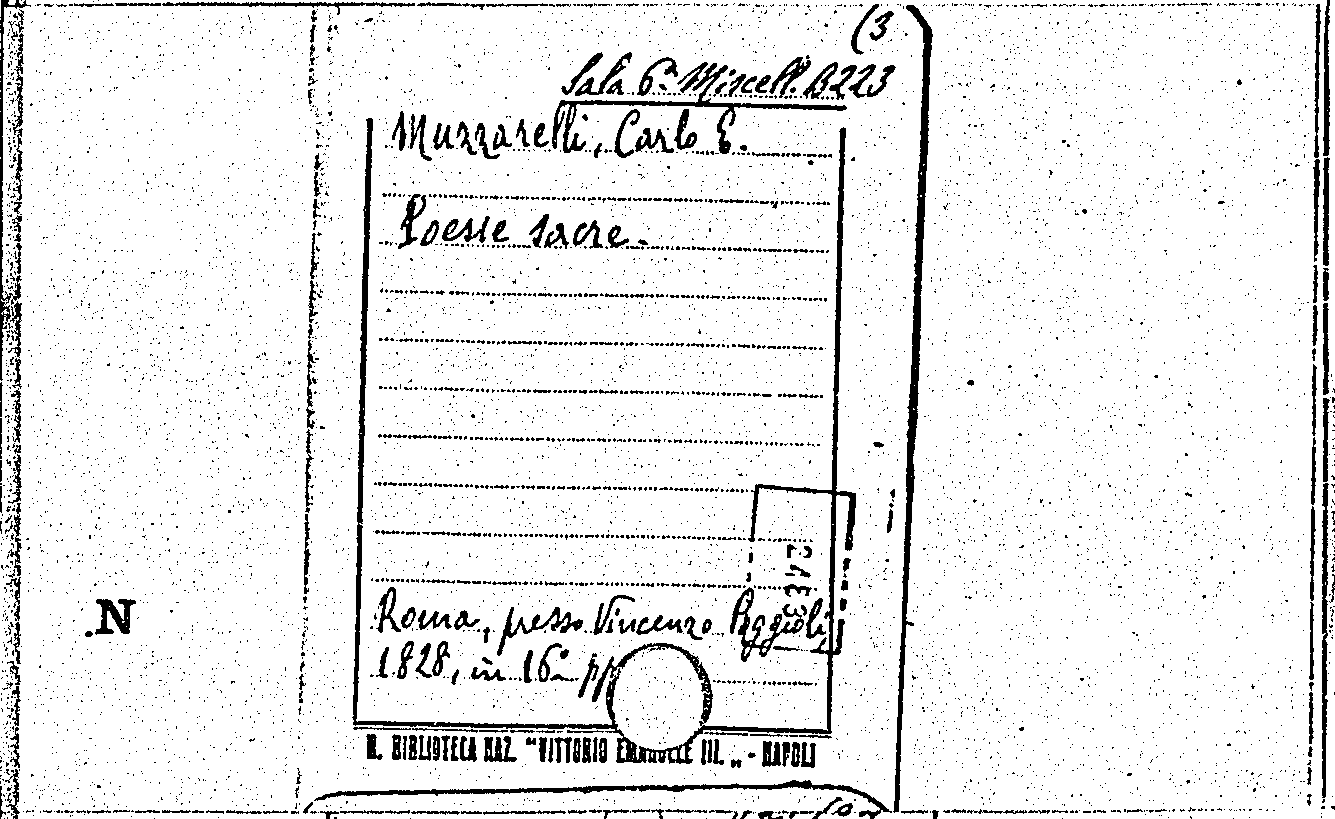 (3
Sala 6ª Miscell. B223
Muzzarelli, Carlo E.
Poesie sacre.
Roma, presso Vincenzo Poggioli,
1828, in 16º pp
N. BIBLIOTECA NAZ. "VITTORIO EMANUELE III. „ - NAPOLI
.N